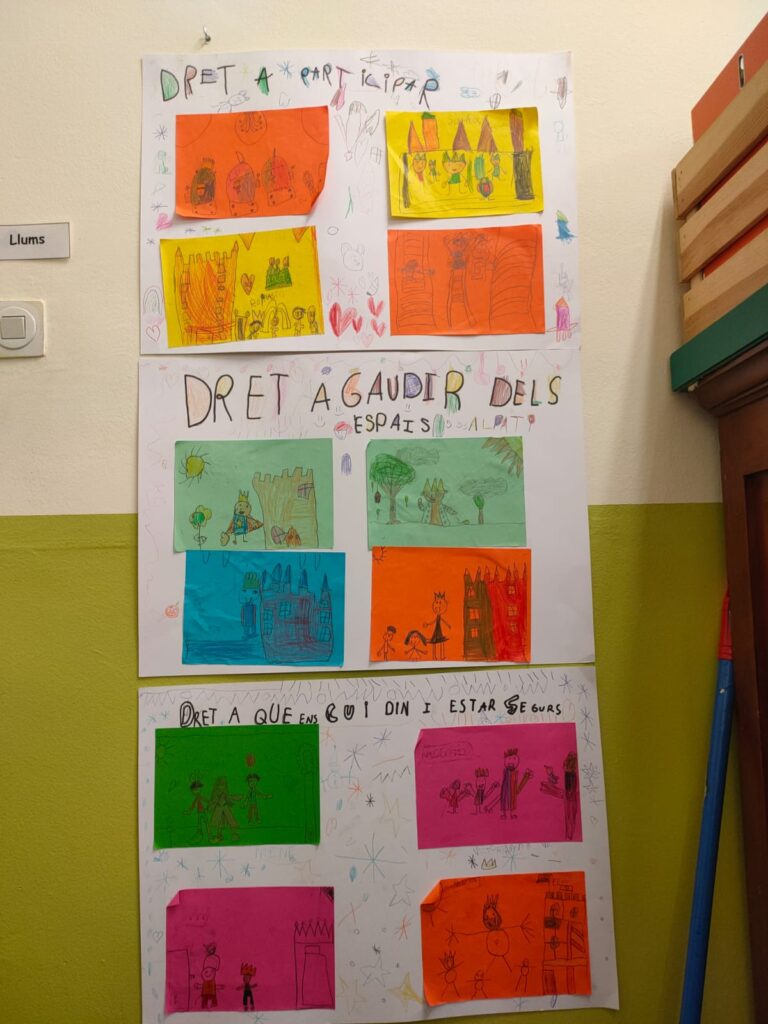 DRET A PARTICIPAR
Llums
DRET A GAUDIR DELS
ESPAIS
DRET A QUE ENS CUIDIN I ESTAR SEGURS